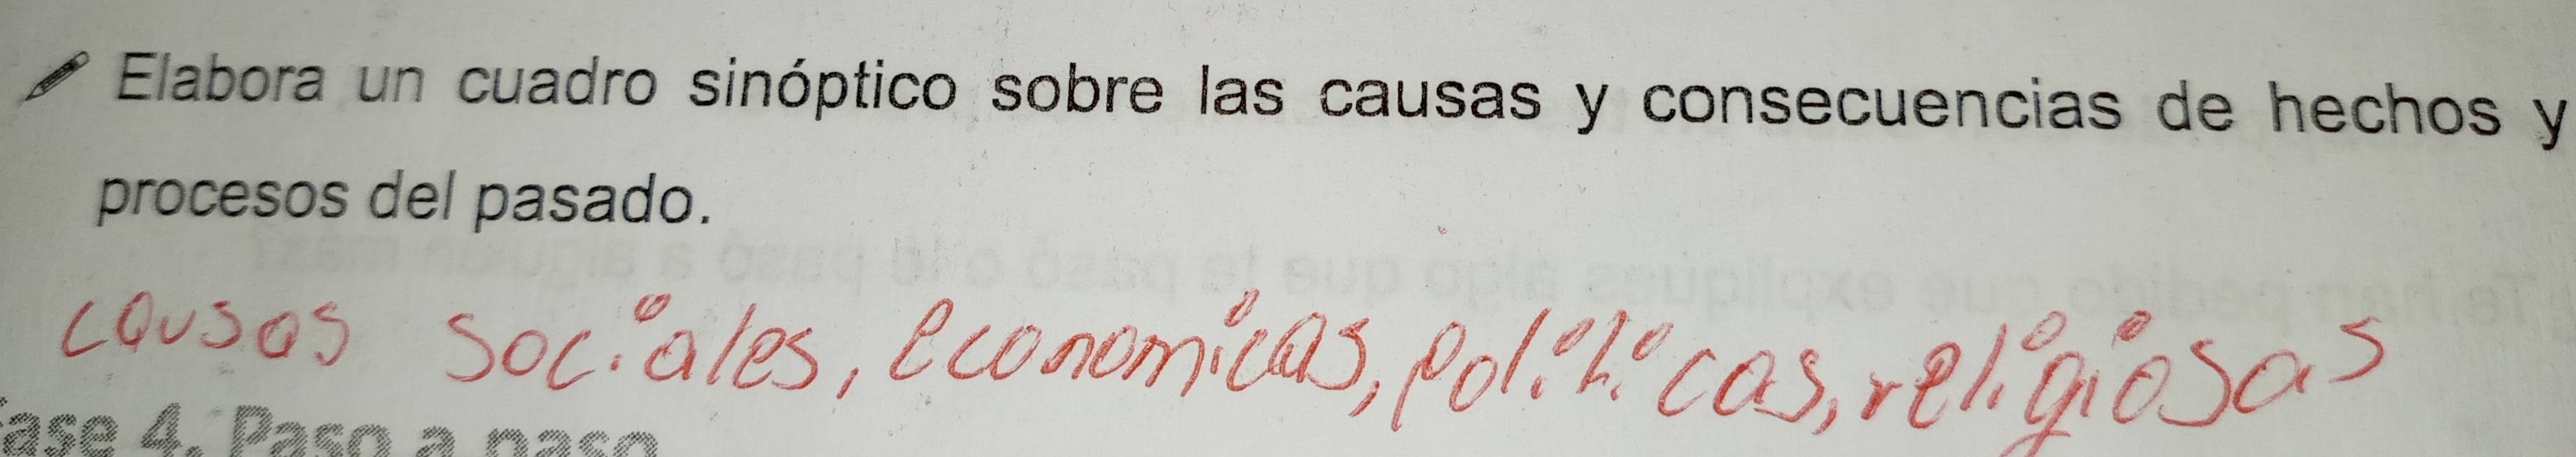 Elabora un cuadro sinóptico sobre las causas y consecuencias de hechos y
procesos del pasado.
causas sociales, economicas, politicas, religiosas
ase 4. Paso a paso